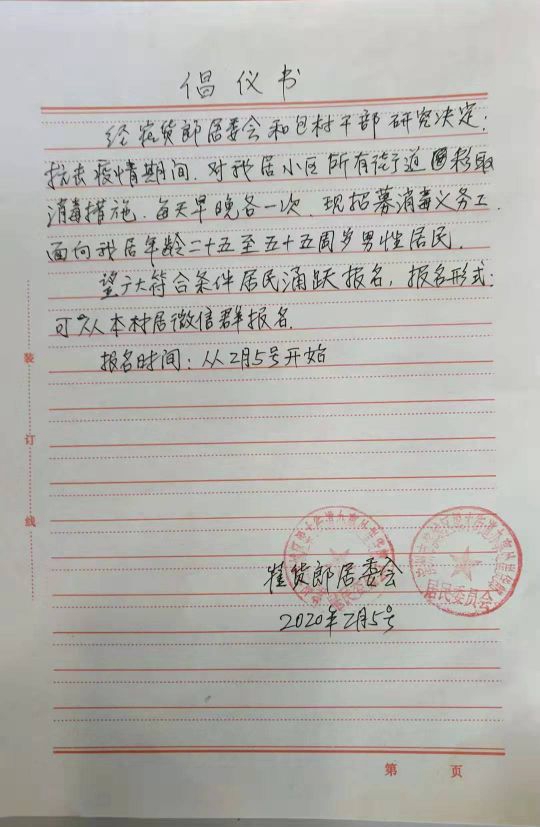 倡仪书
经崔货郎居委会和包村干部研究决定:
抗击疫情期间.对我居小区所有街道采取
消毒措施.每天早晚各一次.现招募消毒义务工.
面向我居年龄二十五至五十五周岁男性居民.
望广大符合条件居民涌跃报名，报名形式:
可以从本村居微信群报名.
报名时间:从2月5号开始
装
订
线
崔货郎居委会
居民委员会
居民委员会
2020年2月5号
第 页